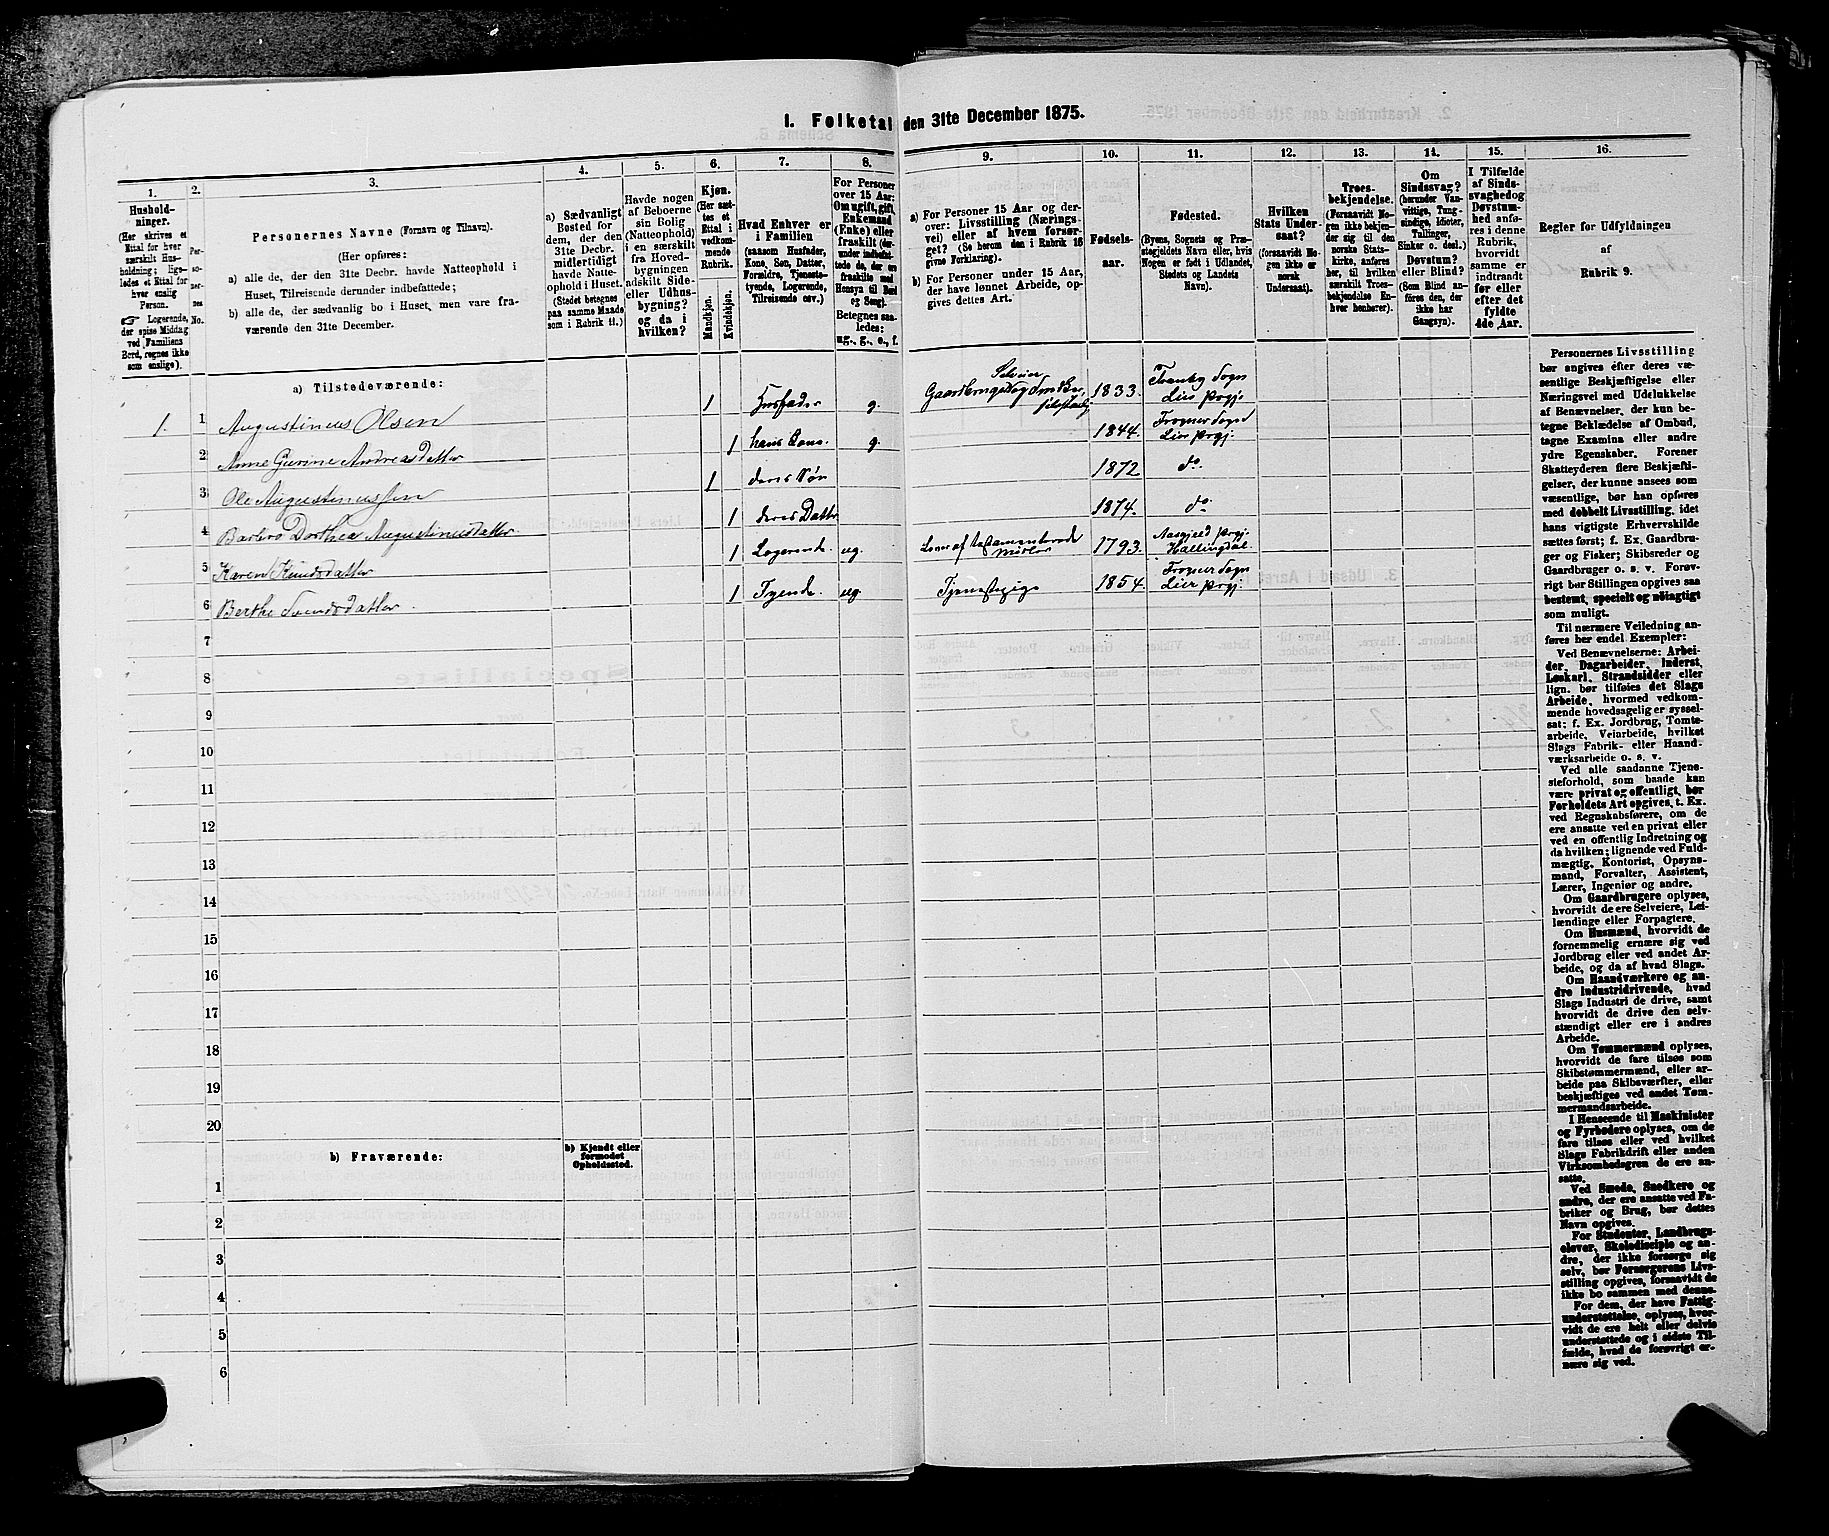 I. Folketal den 31te December 1875.
1. 2. 3. 4. 5. 6. 7. 8. 9. 10. 11. 12. 13. 14. 15. 16.
Husholdninger.
(Her skrives et Ettal for hver særskilt Husholdning; ligeledes et Ettal for hver enslig Person.
☞ Logerende, der spise Middag ved Familiens Bord, regnes ikke som enslige).
Personernes No.
Personernes Navne (Fornavn og Tilnavn).
(Her opføres:
a) alle de, der den 31te Decbr. havde Natteophold i Huset, Tilreisende derunder indbefattede;
b) alle de, der sædvanlig bo i Huset, men vare fraværende den 31te December.
a) Sædvanligt Bosted for dem, der den 31te Decbr. midlertidigt havde Natteophold i Huset.
(Stedet betegnes paa samme Maade som i Rubrik 11.)
Havde nogen af Beboerne sin Bolig (Natteophold) i en særskilt fra Hovedbygningen adskilt Side- eller Udhusbygning? og da i hvilken?
Kjøn.
(Her sættes et Ettal i vedkommende Rubrik.
Mandkjøn.
Kvindekjøn.
Hvad Enhver er i Familien
(saasom Husfader, Kone, Søn, Datter, Forældre, Tjenestetyende, Logerende, Tilreisende osv.)
For Personer over 15 Aar: Om ugift, gift, Enkemand (Enke) eller fraskilt (derunder indbefattede de, der ere fraskilte med Hensyn til Bord og Seng).
Betegnes saaledes: ug., g., e., f.
a) For Personer 15 Aar og derover: Livsstilling (Næringsvei) eller af hvem forsørget? (Se herom den i Rubrik 16 givne Forklaring).
b) For Personer under 15 Aar, der have lønnet Arbeide, opgives dettes Art.
Fødselsaar.
Fødested.
(Byens, Sognets og Præstegjeldets Navn eller, hvis Nogen er født i Udlandet, Stedets og Landets Navn).
Hvilken Stats Undersaat?
(forsaavidt Nogen ikke er norsk Undersaat).
Troesbekjendelse.
(Forsaavidt Nogen ikke bekjender sig til den norske Statskirke, anføres her, til hvilken særskilt Troesbekjendelse Enhver henhører).
Om Sindssvag?
(herunder Vanvittige, Tungsindige, Idioter, Tullinger, Sinker o. desl.)
Døvstum? eller Blind?
(Som Blind anføres den, der ikke har Gangsyn).
I Tilfælde af Sindssvaghed og Døvstumhed anføres i denne Rubrik, hvorvidt samme er indtraadt før eller efter det fyldte 4de Aar.
Regler for Udfyldningen af Rubrik 9.
a) Tilstedeværende:
1. 1 Augustinus Olsen 1 Husfader g. Gaardbruger Selveier og 1833. Tranby Sogn Lier Prgj.
2 Anne Gurine Andreasdatter 1 hans Kone. g. 1844. Frogner Sogn Lier Prgj.
3 Ole Augustinussen 1 deres Søn 1872 do.
4 Barbro Dorthea Augustinusdatter. 1 deres Datter 1874. do.
5 Karen Knudsdatter 1 Logerende ug. Lever af testamenterede Midler 1793. Prgj. Hallingdal.
6 Berthe Svendsdatter. 1 Tyende. ug. Tjenestepige 1854. Frogner Sogn Lier Prgj.
7
8
9
10
11
12
13
14
15
16
17
18
19
20
b) Fraværende:
b) Kjendt eller formodet Opholdssted.
1
2
3
4
5
6
Personernes Livsstilling
bør angives efter deres væ-
sentlige Beskjæftigelse eller
Næringsvei med Udelukkelse
af Benævnelser, der kun be-
tegne Beklædelse af Ombud,
tagne Examina eller andre
ydre Egenskaber. Forener
Skatteyderen flere Beskjæfti-
gelser, der kunne ansees som
væsentlige, bør han opføres
med dobbelt Livsstilling, idet
hans vigtigste Erhvervskilde
sættes først; f. Ex. Gaardbru-
ger og Fisker; Skibsreder og
Gaardbruger o. s. v. Forøv-
rigt bør Stillingen opgives saa
bestemt, specielt og nøiagtigt
som muligt.
Til nærmere Veiledning an-
føres her endel Exempler:
Ved Benævnelserne: Arbei-
der, Dagarbeider, Inderst,
Løskarl, Strandsidder eller
lign. bør tilføies det Slags
Arbeide, hvormed vedkom-
mende hovedsagelig er syssel-
sat; f. Ex. Jordbrug, Tomte-
arbeide, Veiarbeide, hvilket
Slags Fabrik- eller Haand-
værksarbeide o. s. v.
Ved alle saadanne Tjene-
steforhold, som baade kan
være privat og offentligt, bør
Forholdets Art opgives, t. Ex.
ved Regnskabsførere, om de
ere ansatte ved en privat eller
ved en offentlig Indretning og
da hvilken; lignende ved Fuld-
mægtig, Kontorist, Opsyns-
mand, Forvalter, Assistent,
Lærer, Ingeniør og andre.
Om Gaardbrugere oplyses,
hvorvidt de ere Selveiere, Lei-
lændinge eller Forpagtere.
Om Husmænd, hvorvidt de
fornemmelig ernære sig ved
Jordbrug eller ved andet Ar-
beide, og da af hvad Slags.
Om Haandværkere og an-
dre Industridrivende, hvad
Slags Industri de drive, samt
hvorvidt de drive den selv-
stændigt eller ere i andres
Arbeide.
Om Tømmermænd oplyses,
hvorvidt de fare tilsøs som
Skibstømmermænd, eller ar-
beide paa Skibsværfter, eller
beskjæftiges ved andet Tøm-
mermandsarbeide.
I Henseende til Maskinister
og Fyrbødere oplyses, om de
fare tilsøs eller ved hvilket
Slags Fabrikdrift eller anden
Virksomhedsgren de ere an-
satte.
Ved Smede, Snedkere og
andre, der ere ansatte ved Fa-
briker og Brug, bør dettes
Navn opgives.
For Studenter, Landbrugs-
elever, Skoledisciple og an-
dre, der ikke forsørge sig
selv, bør Forsørgerens Livs-
stilling opgives, forsaavidt de
ikke bo sammen med denne.
For dem, der have Fattig-
understøttelse, oplyses, hvor-
vidt de ere helt eller delvis
understøttede og i sidste Til-
fælde, hvad de forøvrigt er-
nære sig ved.